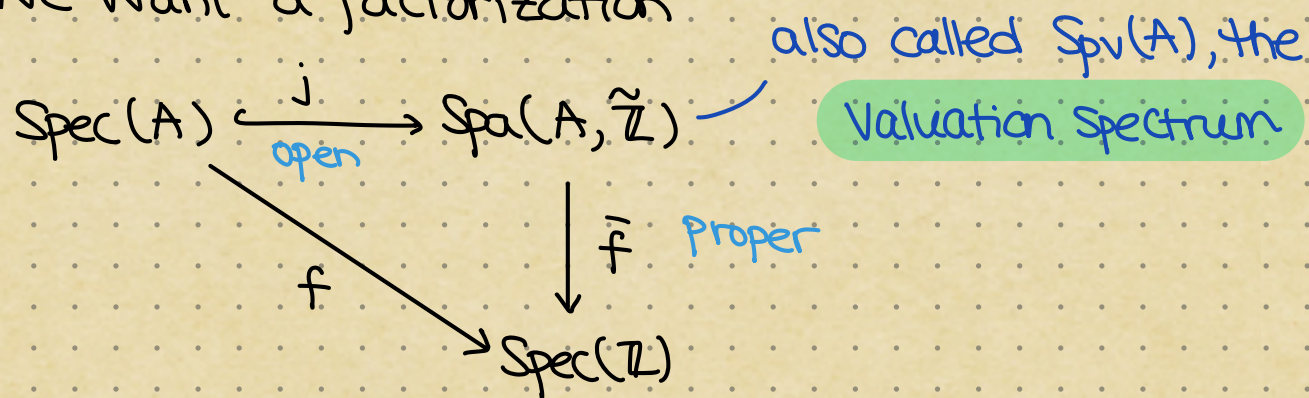 We want a factorization
also called Spv(A), the
Valuation Spectrum
Spec(A) j Spa(A, ℤ̃)
open
f f̄ Proper
Spec(ℤ)